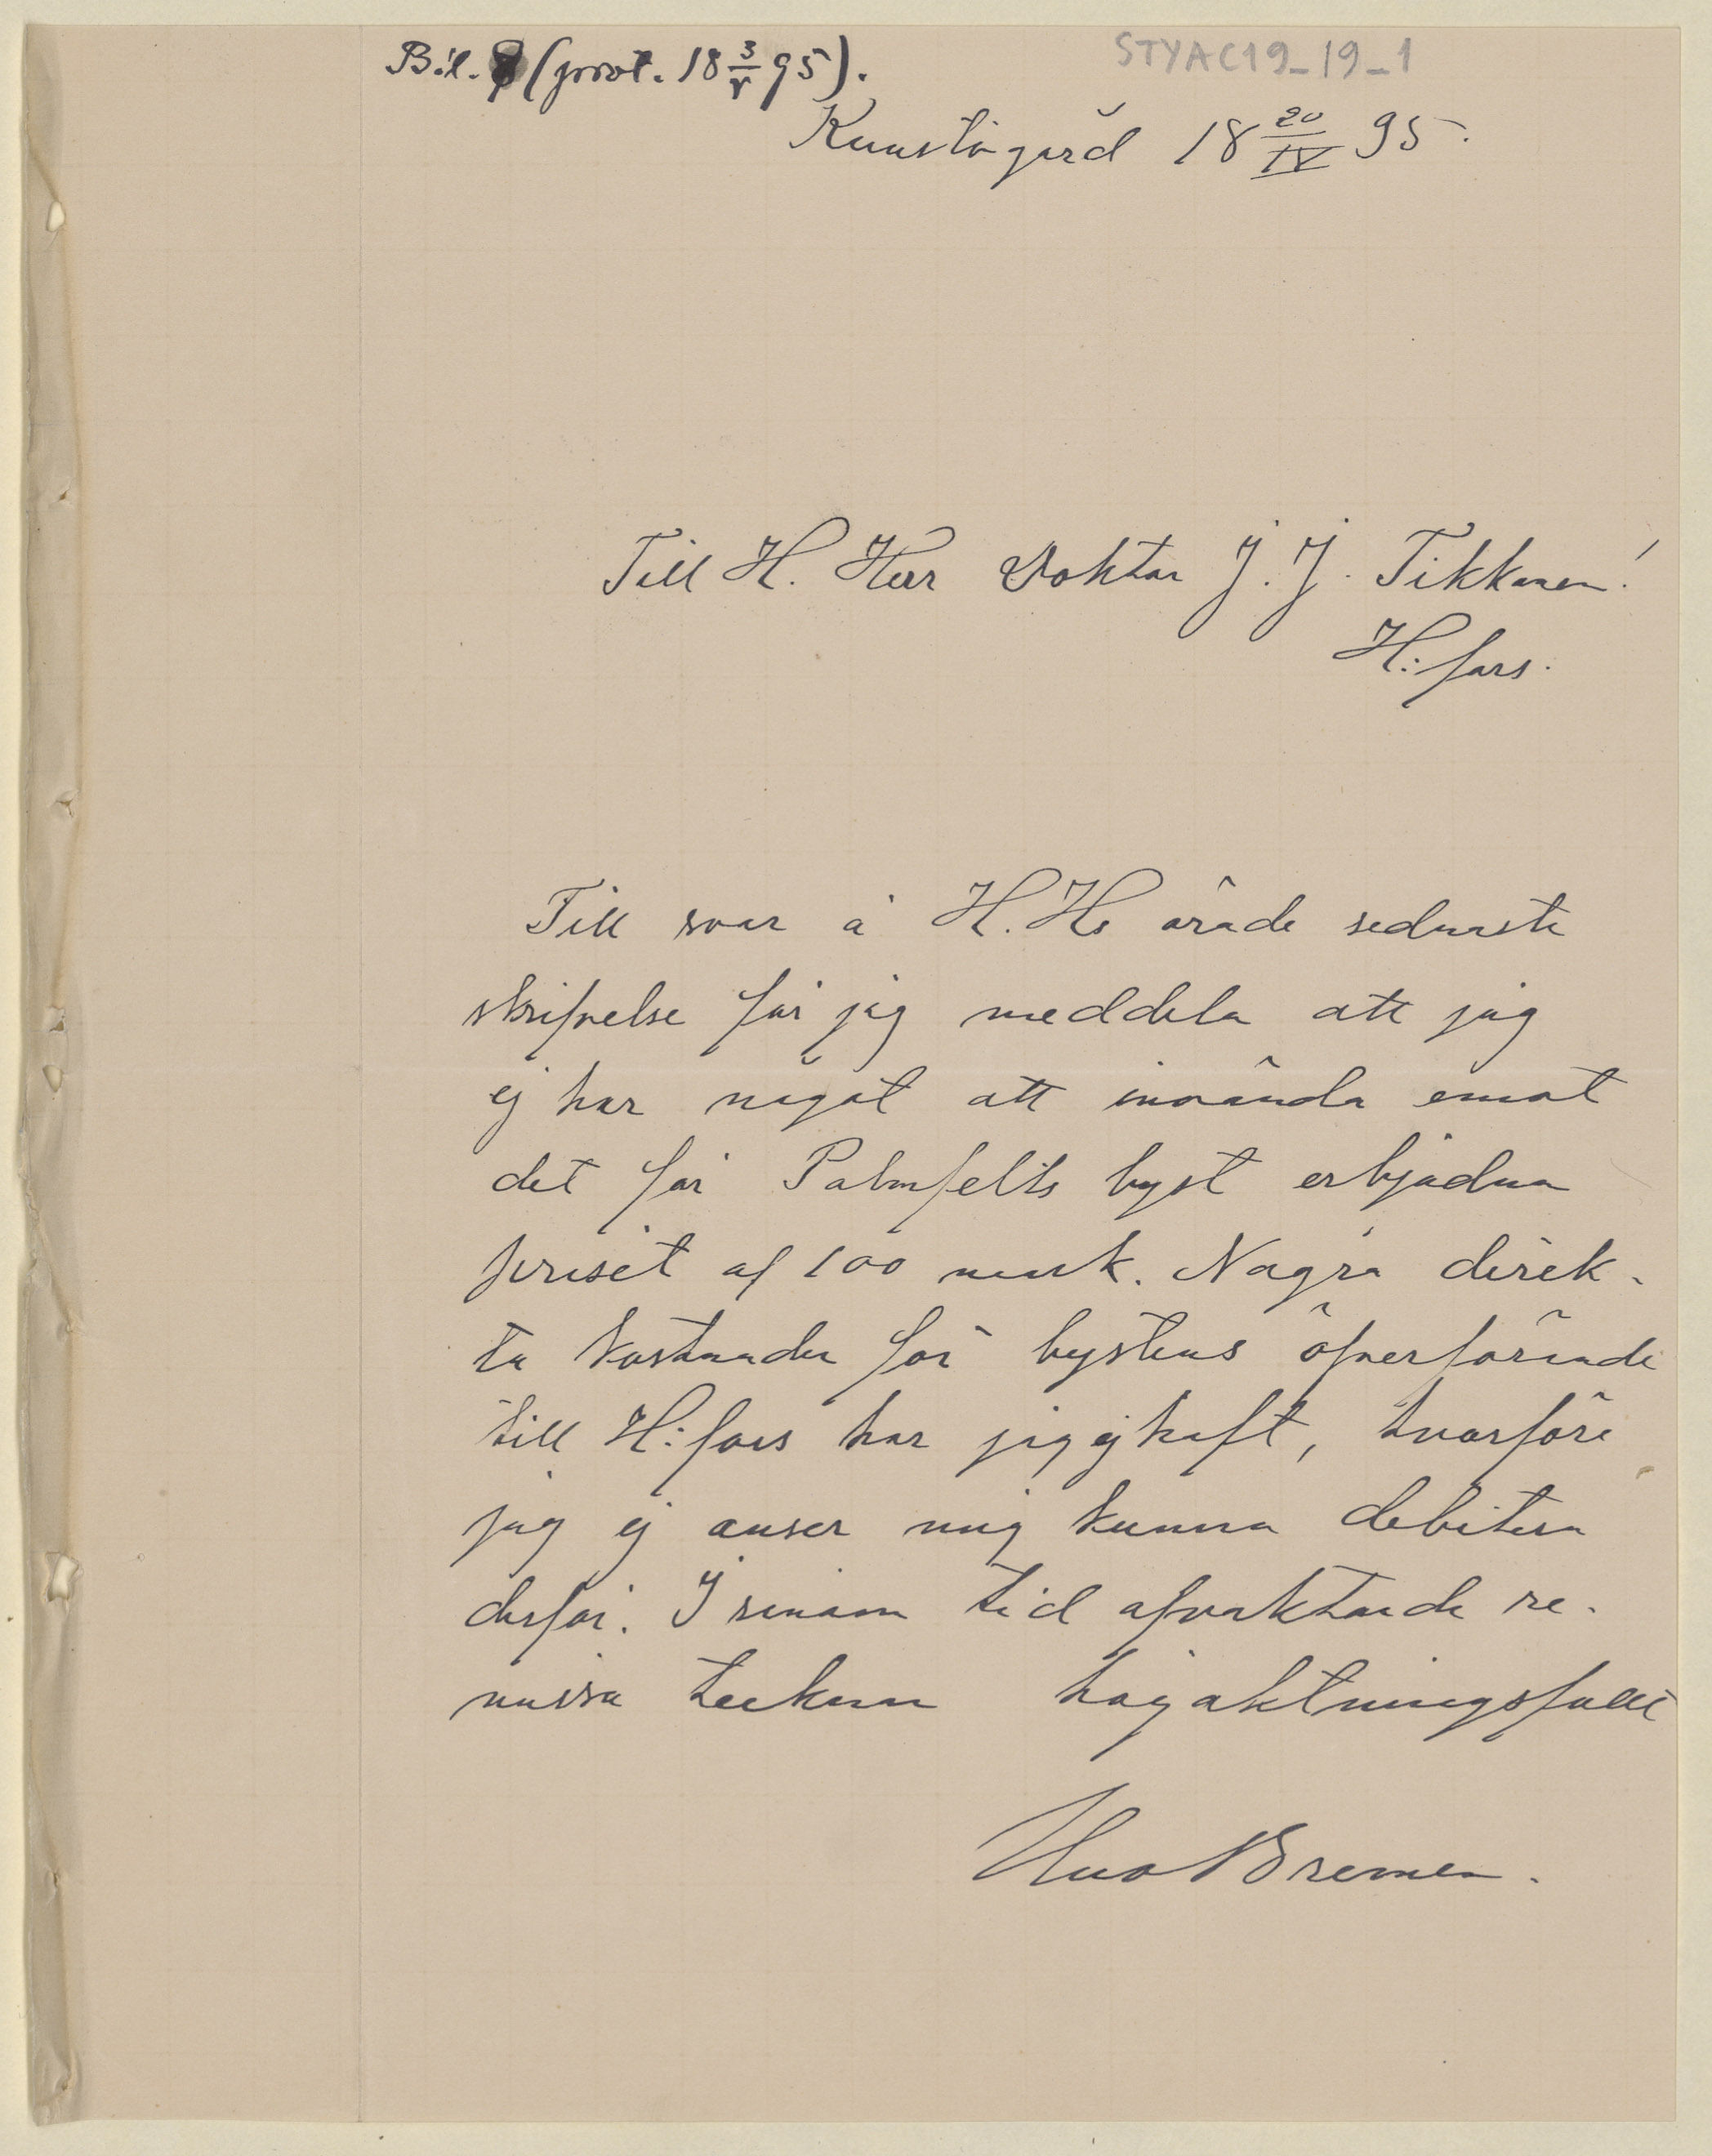 Bil. (prot. 18 3/V 95).
STYAC19_19_1
Kunstögård 18 20/IV 95.
Till H. Herr Doktor J. J. Tikkanen!
H:fors.
Till svar å H. Hs ärade sednaste
skrifvelse får jag meddela att jag
ej har något att invända emot
det för Palmfelts byst erbjudna
priset af 100 mark. Några direk-
ta kostnader för bystens öfverförande
till H:fors har jag ej haft, hvarföre
jag ej anser mig kunna debitera
derför. I sinom tid afvaktande re-
missa tecknar högaktningsfullt
Bremer.